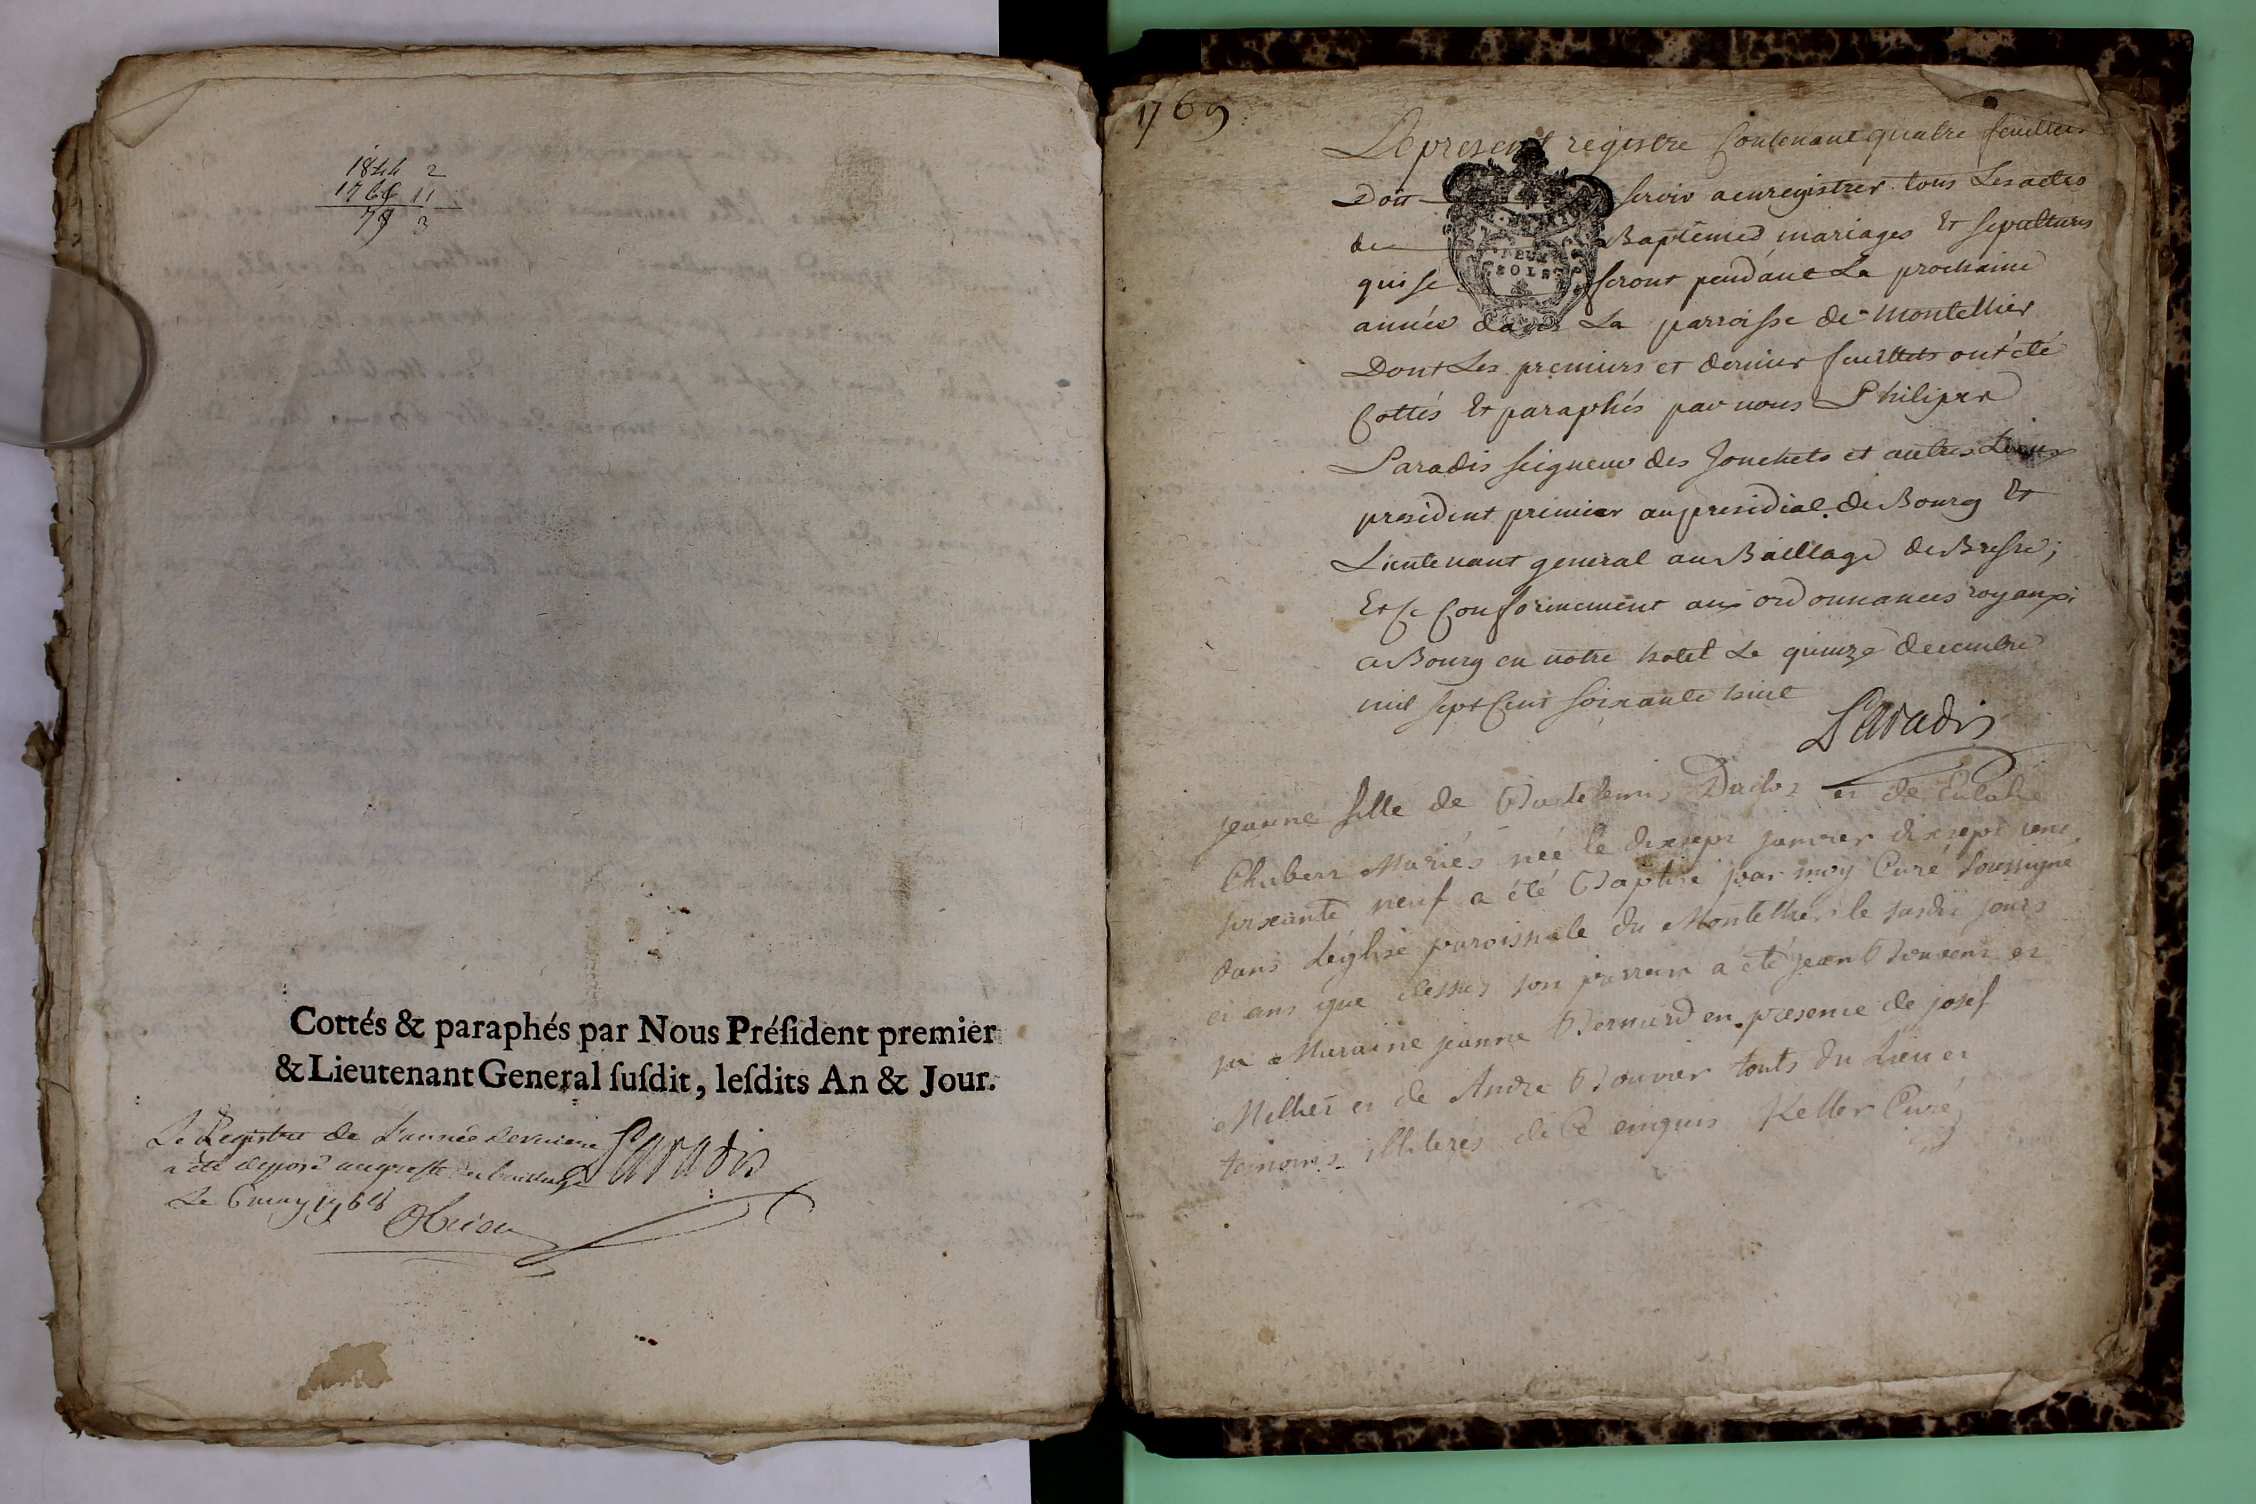 1844 2
1766 11
78 3
Cottés & paraphés par Nous Préſident premier
& Lieutenant General ſuſdit, leſdits An & Jour.
Le Registre de L'année derniere
a été deposé au greffe du bailliage
Le 6 may 1768
Paradis
1769
Le present registre Contenant quatre feuillets
Doit servir a enregistrer tous Les actes
de Baptêmes mariages Et sepultures
qui se feront pendant La prochaine
année dans La parroisse de Montellier
DEUX
SOLS
Dont Les premiers et dernier feuillets ont été
Cottés Et paraphés par nous Philiper
Paradis seigneur des Jonchets et autres Lieux
president premier au presidial de Bourg Et
Lieutenant general au Baillage de Bresse;
Et Ce Conformement aux ordonnances royaux;
a Bourg en notre hotel Le quinze decembre
mil sept Cent soixante huit
Paradis
jeanne fille de Bartelemi et de Eulalie
Chubert Mariés née le dixsept janvier dixsept cent
soixante neuf a été Baptisé par moy Curé soussigné
dans L'église paroissiale du Montellier le susdit jours
et ans que dessus son parrain a été jean et
sa Maraine jeanne Bernard en presence de josef
Milliet et de André Bouvier touts du Lieu et
temoins illiterés de Ce enquis Keller Curé